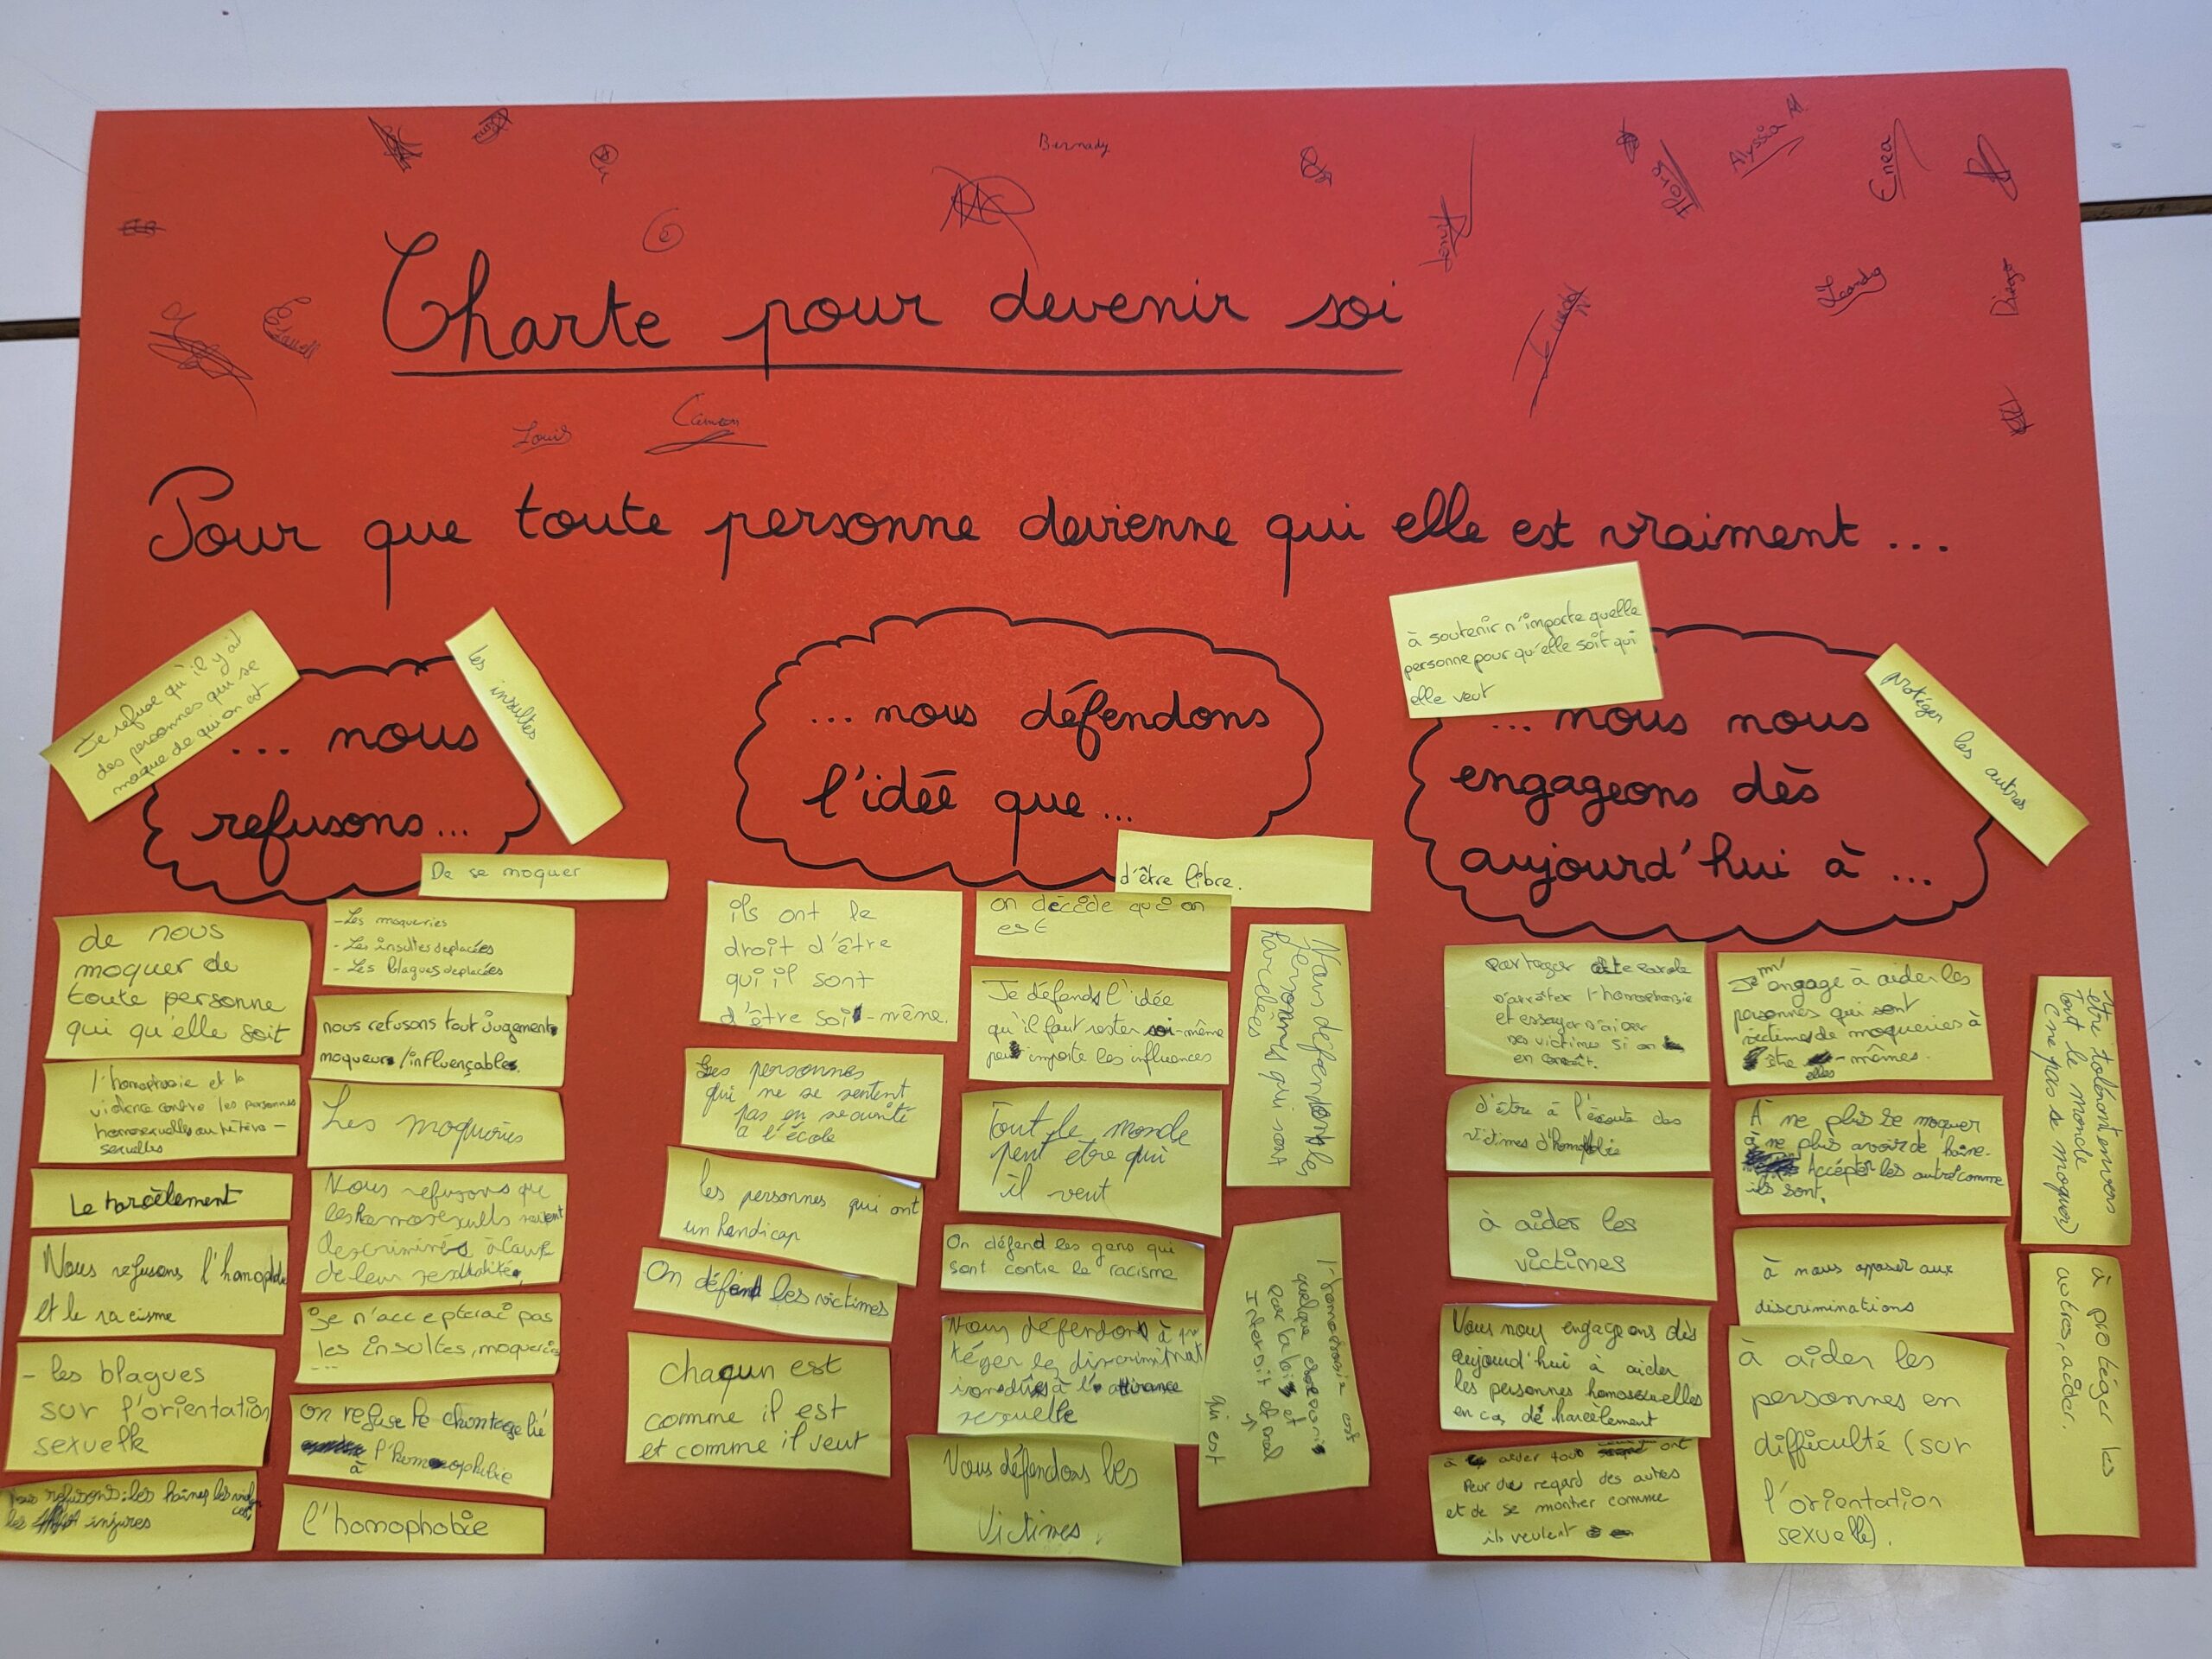 Bernady
Flore
Alyssia M
Enea
Diego
Charte pour devenir soi
Louis
Cameron
Pour que toute personne devienne qui elle est vraiment ...
... nous
refusons...
Je refuse qu'il y ait
des personnes qui se
moque de qui on est
les insultes
De se moquer
de nous
moquer de
toute personne
qui qu'elle soit
l'homophobie et la
violence contre les personnes
homosexuelles ou hétéro-
sexuelles
Le harcèlement
Nous refusons l'homophobie
et le racisme
- les blagues
sur l'orientation
sexuelle
refusons: les haines, les
les injures
- Les moqueries
- Les insultes deplacées
- Les blagues deplacées
nous refusons tout jugements
moqueurs/influençables.
Les moqueries
Nous refusons que
les homosexuels soient
à cause
de leur sexualité.
je n'accepterai pas
les insultes, moqueries
...
on refuse le chantage lié
à l'homophobie
l'homophobie
... nous défendons
l'idée que...
d'être libre.
ils ont le
droit d'être
qui il sont
d'être soi-même.
Les personnes
qui ne se sentent
pas en securité
à l'école
les personnes qui ont
un handicap
On défend les victimes
chaqun est
comme il est
et comme il veut
on décide qui on
est
Je défends l'idée
qu'il faut rester soi-même
peu importe les influences
Tout le monde
peut être qui
il veut
On défend les gens qui
sont contre le racisme
Nous défendons à
téger les
à l'attirance
sexuelle
Nous défendons les
victimes
Nous défendons les
personnes qui sont
harcelées
l'homophobie est
quelque chose
par la loi et
Interdit et mal
qui est
à soutenir n'importe quelle
personne pour qu'elle soit qui
elle veut
protéger les autres
... nous nous
engageons dès
aujourd'hui à ...
Partager cette parole
D'arrêter l'homophobie
et essayer D'aider
Des victimes si on
en connaît.
d'être à l'écoute des
victimes d'homophobie
à aider les
victimes
Nous nous engageons dès
aujourd'hui à aider
les personnes homosexuelles
en cas de harcèlement
à aider tous ont
Peur du regard des autres
et de se montrer comme
ils veulent
Je m'engage à aider les
personnes qui sont
victimes de moqueries à
être elles-mêmes.
À ne plus se moquer
à ne plus avoir de haine.
Accépter les autre comme
ils sont.
à nous opposer aux
discriminations
à aider les
personnes en
difficulté (sur
l'orientation
sexuelle).
être tolérant envers
tout le monde
(ne pas se moquer)
à protéger les
autres, aider.